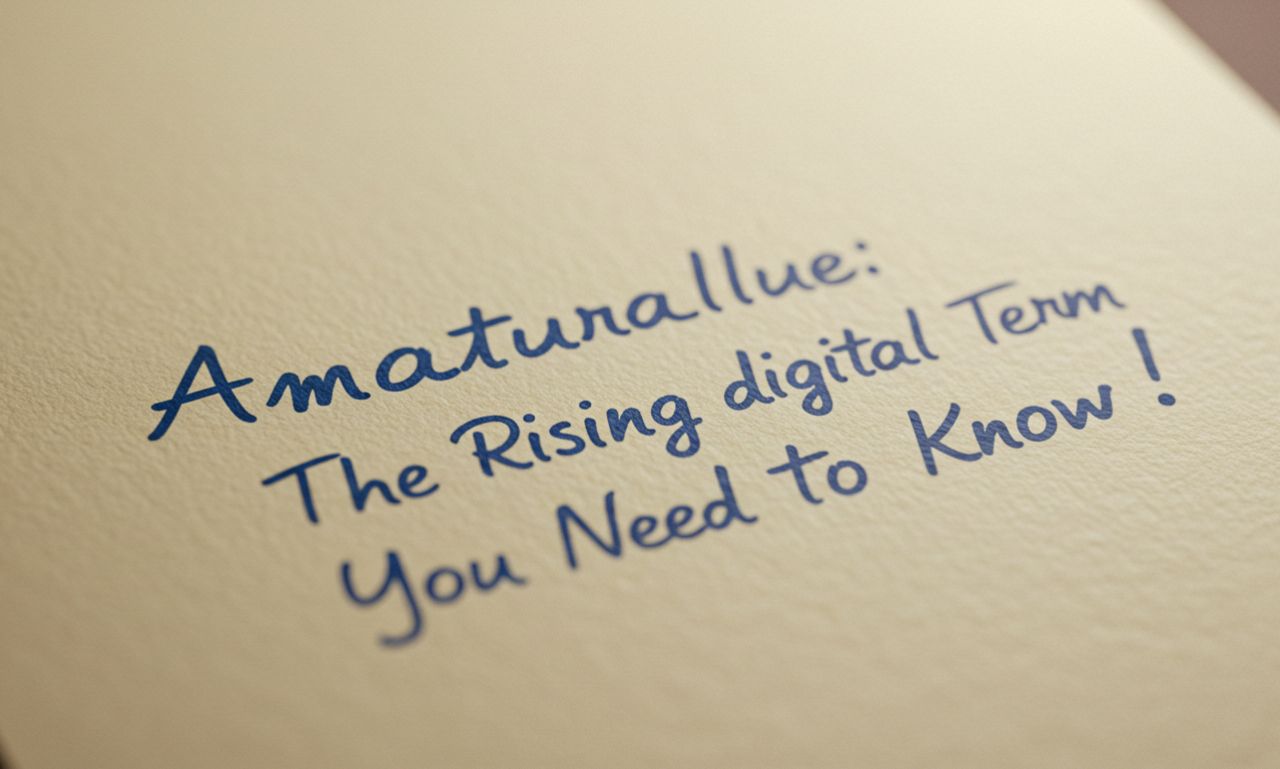 Amaturallue:
The Rising digital Term
You Need to Know!